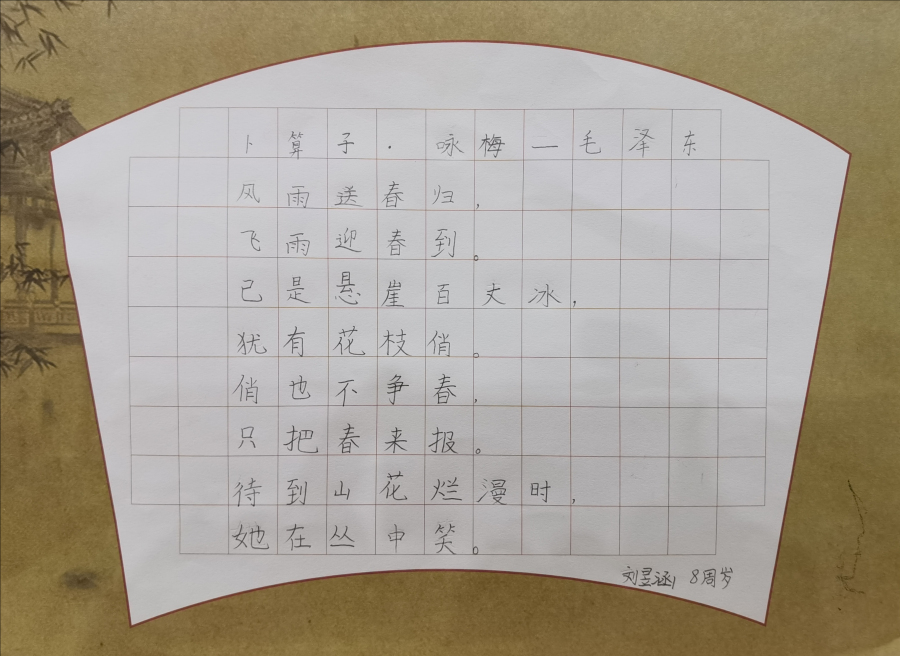 卜算子·咏梅—毛泽东
风雨送春归,
飞雨迎春到。
已是悬崖百丈冰,
犹有花枝俏。
俏也不争春,
只把春来报。
待到山花烂漫时,
她在丛中笑。
刘昱涵 8周岁